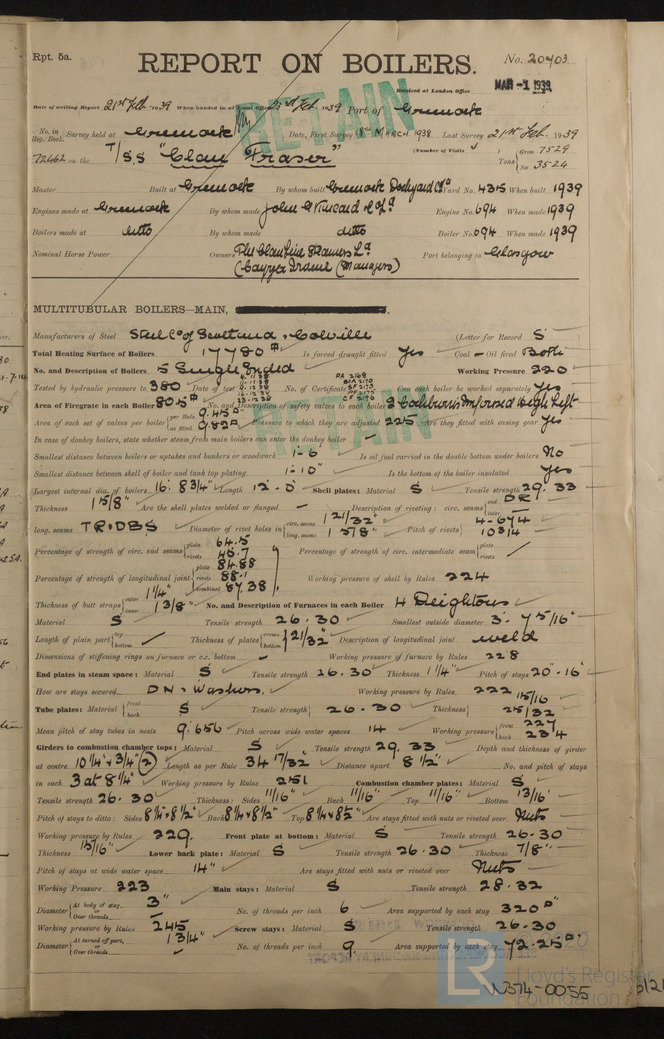 Rpt. 5a.
REPORT ON BOILERS.
No. 20403
Received at London Office MAR -1 1939
RETAIN
Date of writing Report 21st Feb. 1939 When handed in at Local Office 23rd Feb. 1939 Port of Greenock
No. in Reg. Book. Survey held at Greenock Date, First Survey 18th MARCH 1938 Last Survey 21st Feb. 1939
72462 on the T/S.S "Clan Fraser" (Number of Visits) Tons Gross 7529 Net 3524
Master Built at Greenock By whom built Greenock Dockyard Co. Yard No. 435 When built 1939
Engines made at Greenock By whom made John G Kincaid & Co Ld Engine No. 694 When made 1939
Boilers made at ditto By whom made ditto Boiler No. 694 When made 1939
Nominal Horse Power Owners The Clan Line Steamers Ld (Cayzer Irvine (Managers) Port belonging to Glasgow
MULTITUBULAR BOILERS—MAIN,
Manufacturers of Steel Steel Co of Scotland, Colville (Letter for Record S)
Total Heating Surface of Boilers 17780 Is forced draught fitted Yes Coal or Oil fired Both
No. and Description of Boilers 5 Single Ended Working Pressure 220
Tested by hydraulic pressure to 380 Date of test No. of Certificate Can each boiler be worked separately Yes
Area of Firegrate in each Boiler 80.5 No. and Description of safety valves to each boiler 2 Cockburns Improved High Lift
Area of each set of valves per boiler per Rule 9.45 as fitted 9.82 Pressure to which they are adjusted 225 Are they fitted with easing gear Yes
In case of donkey boilers, state whether steam from main boilers can enter the donkey boiler –
Smallest distance between boilers or uptakes and bunkers or woodwork 1'-6" Is oil fuel carried in the double bottom under boilers No
Smallest distance between shell of boiler and tank top plating 1'-10" Is the bottom of the boiler insulated Yes
Largest internal dia. of boilers 16' 8 3/4" Length 12'-0" Shell plates: Material S Tensile strength 29.33
Thickness 1 5/8" Are the shell plates welded or flanged – Description of riveting: circ. seams end DR inter.
long. seams TR.DBS Diameter of rivet holes in circ. seams 1 21/32" long. seams 1 5/8" Pitch of rivets 4.674 10 3/4
Percentage of strength of circ. end seams plate 64.5 rivets 48.7 Percentage of strength of circ. intermediate seam plate rivets
Percentage of strength of longitudinal joint plate 84.88 rivets 88.1 combined 87.38 Working pressure of shell by Rules 224
Thickness of butt straps outer 1 1/4" inner 1 3/8" No. and Description of Furnaces in each Boiler 4 Deightons
Material S Tensile strength 26.30 Smallest outside diameter 3'-7 5/16"
Length of plain part top bottom Thickness of plates crown bottom 21/32" Description of longitudinal joint weld
Dimensions of stiffening rings on furnace or c.c. bottom – Working pressure of furnace by Rules 228
End plates in steam space: Material S Tensile strength 26.30 Thickness 1 1/4" Pitch of stays 20"-16"
How are stays secured DN & Washers. Working pressure by Rules 222
Tube plates: Material front back S Tensile strength 26.30 Thickness 15/16 25/32
Mean pitch of stay tubes in nests 9.656 Pitch across wide water spaces 14 Working pressure front 227 back 234
Girders to combustion chamber tops: Material S Tensile strength 29.33 Depth and thickness of girder
at centre 10 1/4" x 3/4" (2) Length as per Rule 34 17/32" Distance apart 8 1/2" No. and pitch of stays
in each 3 at 8 1/4" Working pressure by Rules 251 Combustion chamber plates: Material S
Tensile strength 26.30 Thickness: Sides 11/16" Back 11/16" Top 11/16" Bottom 13/16"
Pitch of stays to ditto: Sides 8 1/4" x 8 1/2" Back 8 1/2" x 8 1/2" Top 8 1/4" x 8 1/2" Are stays fitted with nuts or riveted over Nuts
Working pressure by Rules 229. Front plate at bottom: Material S Tensile strength 26.30
Thickness 15/16" Lower back plate: Material S Tensile strength 26.30 Thickness 7/8"
Pitch of stays at wide water space 14" Are stays fitted with nuts or riveted over Nuts
Working Pressure 223 Main stays: Material S Tensile strength 28.32
Diameter At body of stay, or Over threads 3" No. of threads per inch 6 Area supported by each stay 320
Working pressure by Rules 245 Screw stays: Material S Tensile strength 26.30
Diameter At turned off part, or Over threads 1 3/4" No. of threads per inch 9 Area supported by each stay 72.25
LR Lloyd's Register Foundation
W574-0055